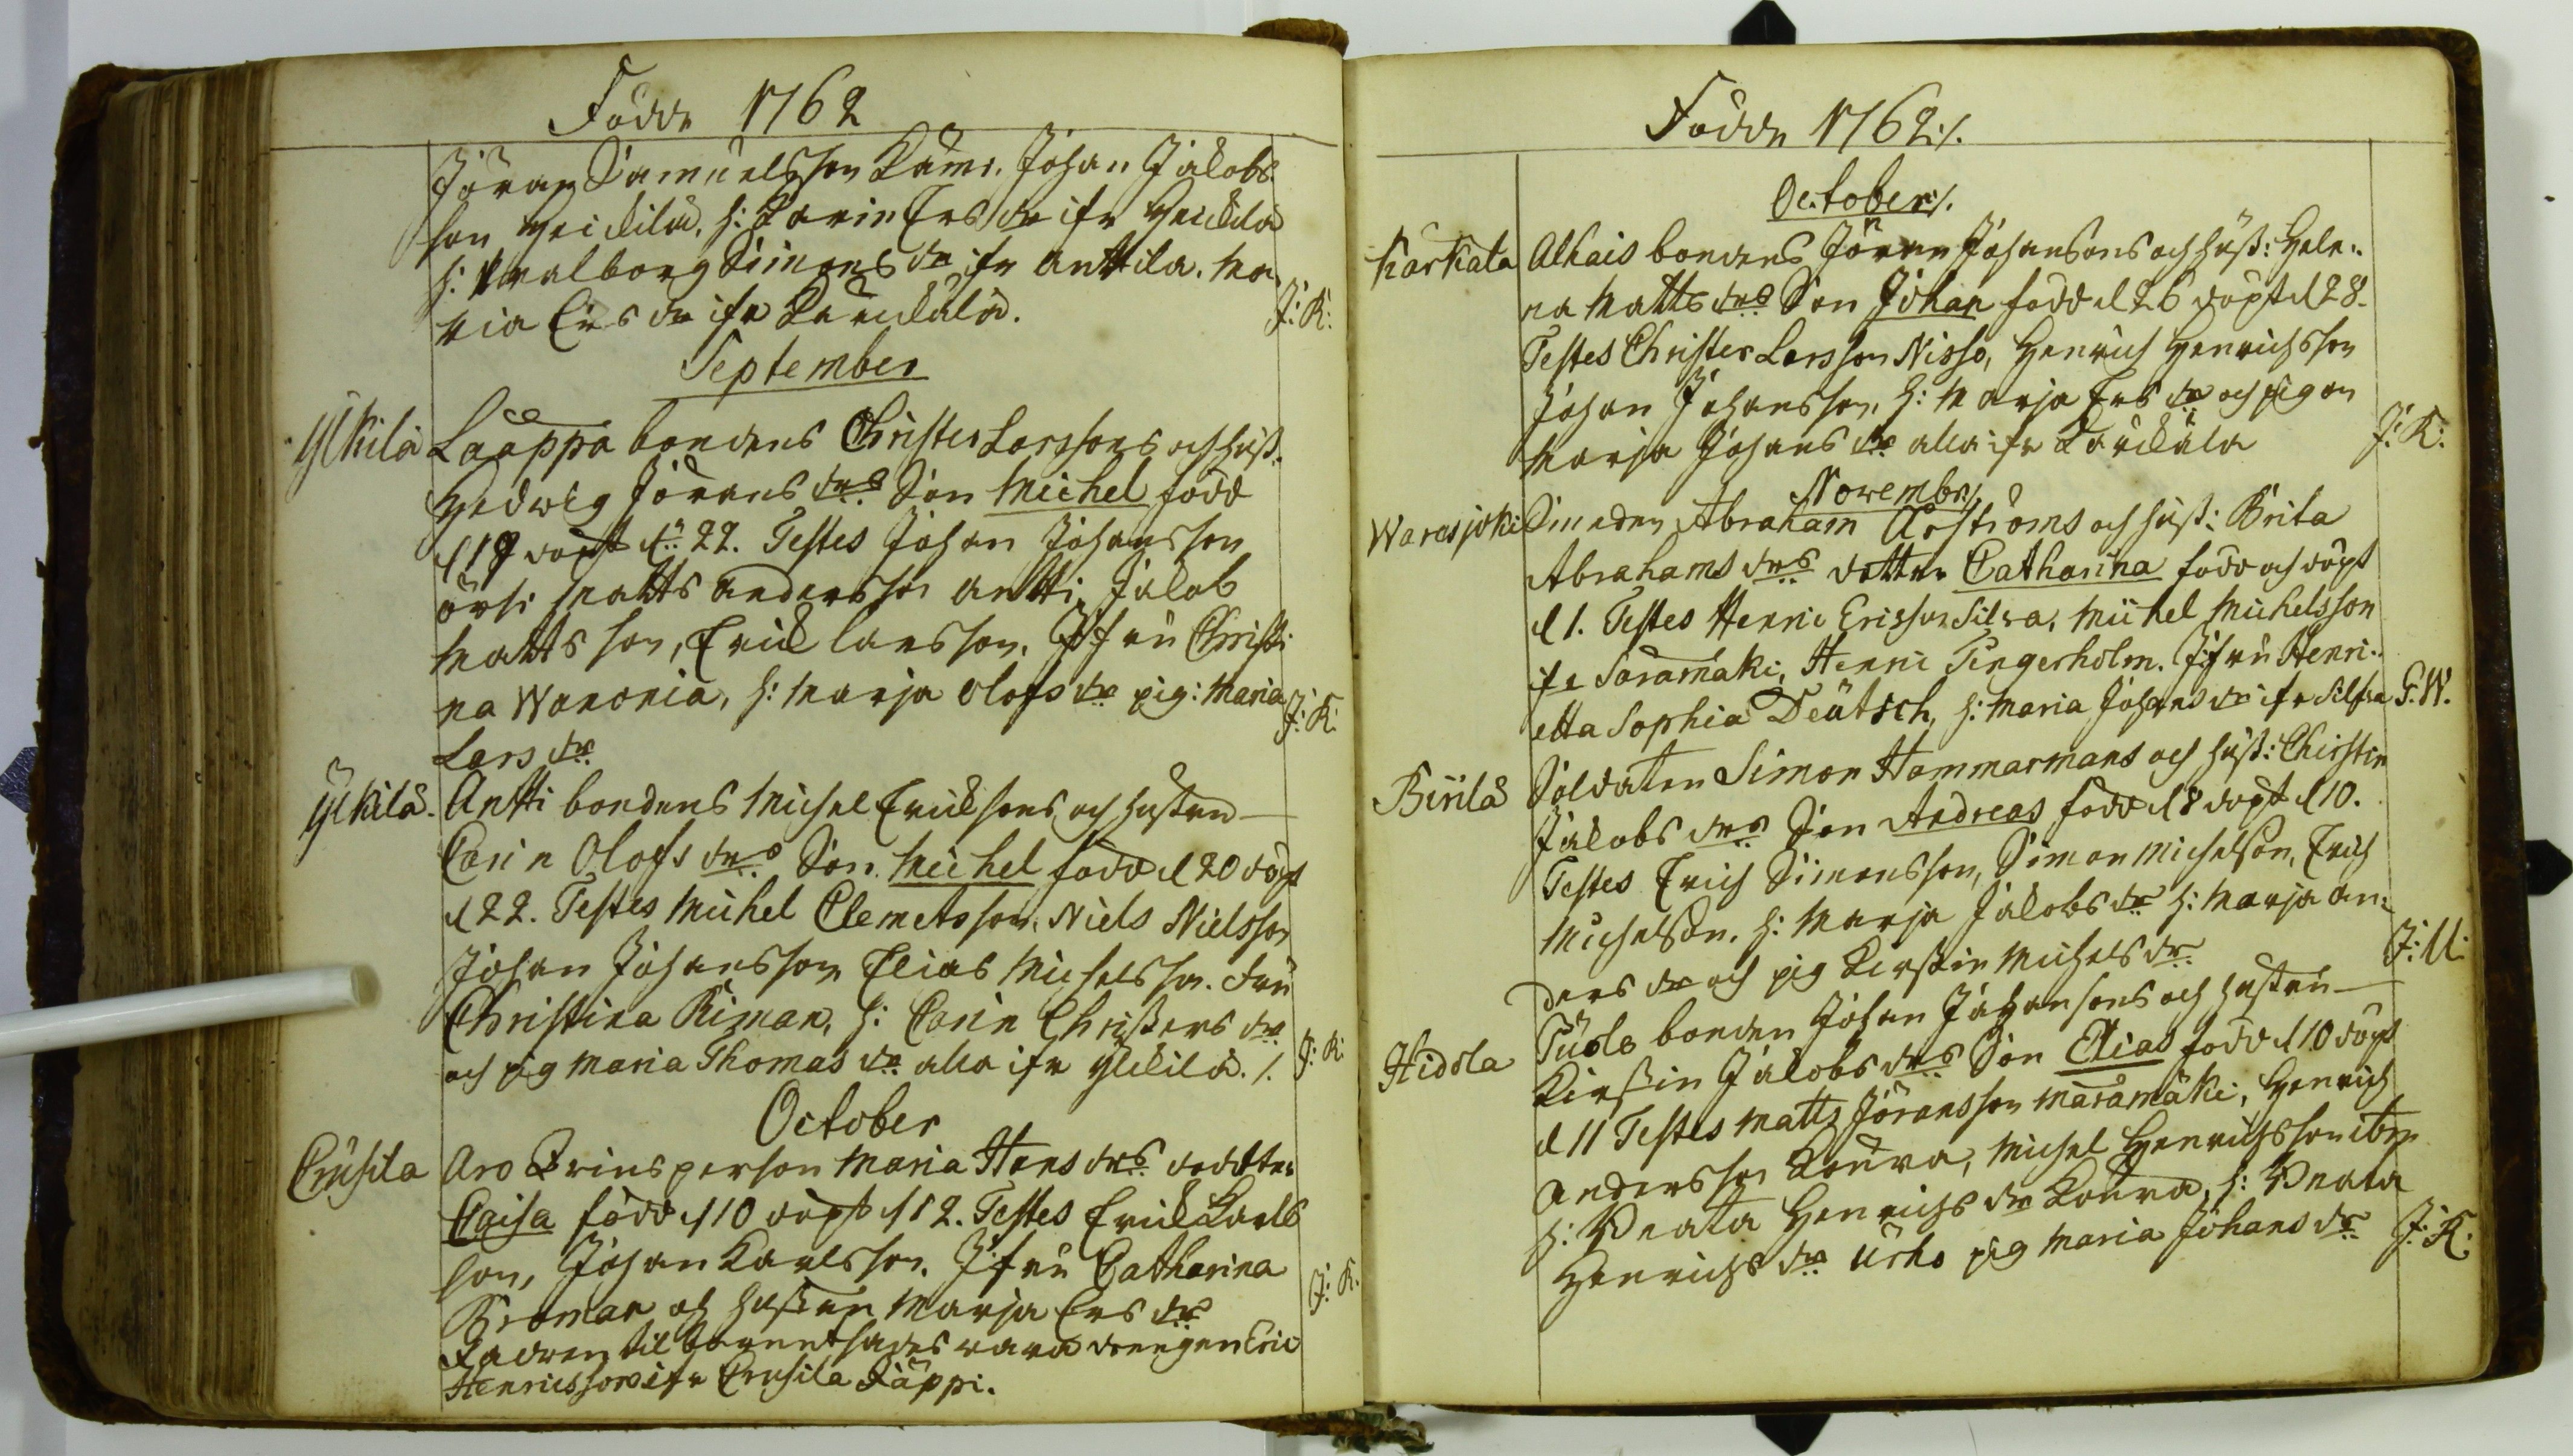 Födde 1762
Jöran Samuelsson Kämi. Johan Jakobs
son Heickilä, h: Karin Ers dr ifr Heickilä
h: Walborg Simons dr ifr Anttila. Ma
ria Ers dr ifr Karckala. J: K:
September
Ylkilä Laappa bondens Christer Larssons och hust.
Hedwig Jörans drs Son Michel född
d 19 döpt d: 22. Testes Johan Johansson
Matts Andersson Antti, Jakob
Mattsson, Erick Larsson. Jfru Christi
na Wanonia, h: Marja Olofs dr pig: Maria
Lars dr J: K:
Ylkilä. Antti bondens Michel Ericksons och hustrun
Carin Olofs drs Son Michel född d 20 döpt
d 22. Testes Michel Clemetsson, Niels Nielsson
Johan Johansson Elias Michelsson. Fru
Christina Kiman, h: Carin Christers dr
och pig Maria Thomas dr alla ifr Ylkilä. /. J: K:
October
Crusila Aro Qvinsperson Maria Hans drs dockter
Caisa född d 10 döpt d 12. Testes Erick Karls
son, Johan Karlsson. Jfru Catharina
Broman och hustrun Marja Ers dr J: K.
Fadren til barnet sades vara drengen Eric
Henricsson ifr Crusila Jäppi.
Födde 1762 ./.
October ./.
Karkala Alhais bondens Jöran Johansons och hust: Hele:
na Matts drs Son Johan född d 26 döpt d 28.
Testes Christer Larsson Nisso, Henrich Henrichsson
Johan Johansson, h: Marja Ers dr och pigan
Marja Johans dr alla ifr Karckala J: K:
Novembr/.
Warasjoki Smeden Abraham Åhströms och hust: Brita
Abrahams drs dotter Catharina född och döpt
d 1. Testes Henric Ericsson Silva, Michel Michelsson
ifr Saramaki, Henric Tingerholm. Jfru Henri:
etta Sophia Deutsch, h: Maria Johans dr ifr Silfva G. W.
Birilä Soldaten Simon Hammarmans och hust: Chirstin
Jakobs drs Son Andreas född d 8 döpt d 10.
Testes Erich Simonsson, Simon Michelson, Erich
Michelson. h: Marja Jakobs dr h: Marja An:
ders dr och pig Kirstin Michels dr J: U:
Hidola bonden Johan Johansons och hustru
Kirstin Jakobs drs Son Elias född d 10 döpt
d 11 Testes Matts Jöransson Maramäki, Henrich
Andersson Koura, Michel Henrichsson ibm
h: Beata Henrichs dr Koura, h: Beata
Henrichs dr Urho pig Maria Johans dr J: K: